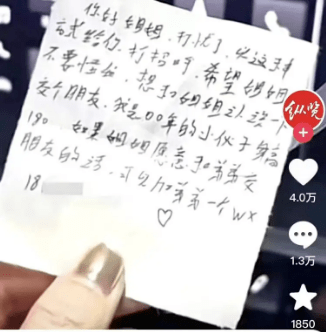 你好姐姐,打扰了,以这种
方式给你打招呼,希望姐姐
不要怪我,想和姐姐认识一下
交个朋友,我是00年的小伙子身高
190,如果姐姐愿意和弟弟交
朋友的话,可以加弟弟一个wx
18
♡
纵览
4.0万
1.3万
1850